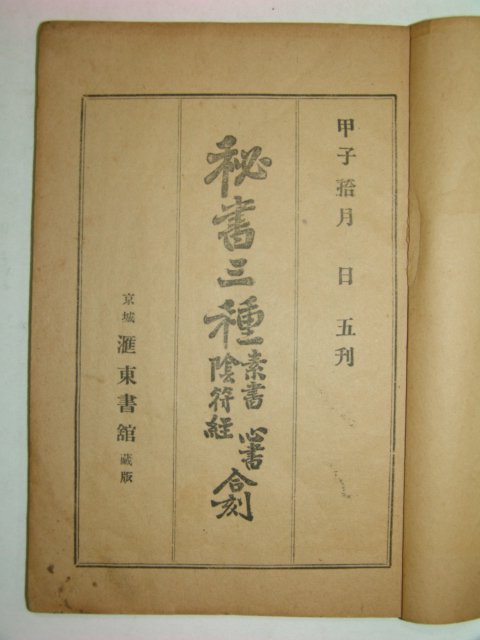 甲子拾月 日 五刊
秘書三種 素書 心書 陰符経 合刻
京城 滙東書舘 蔵版